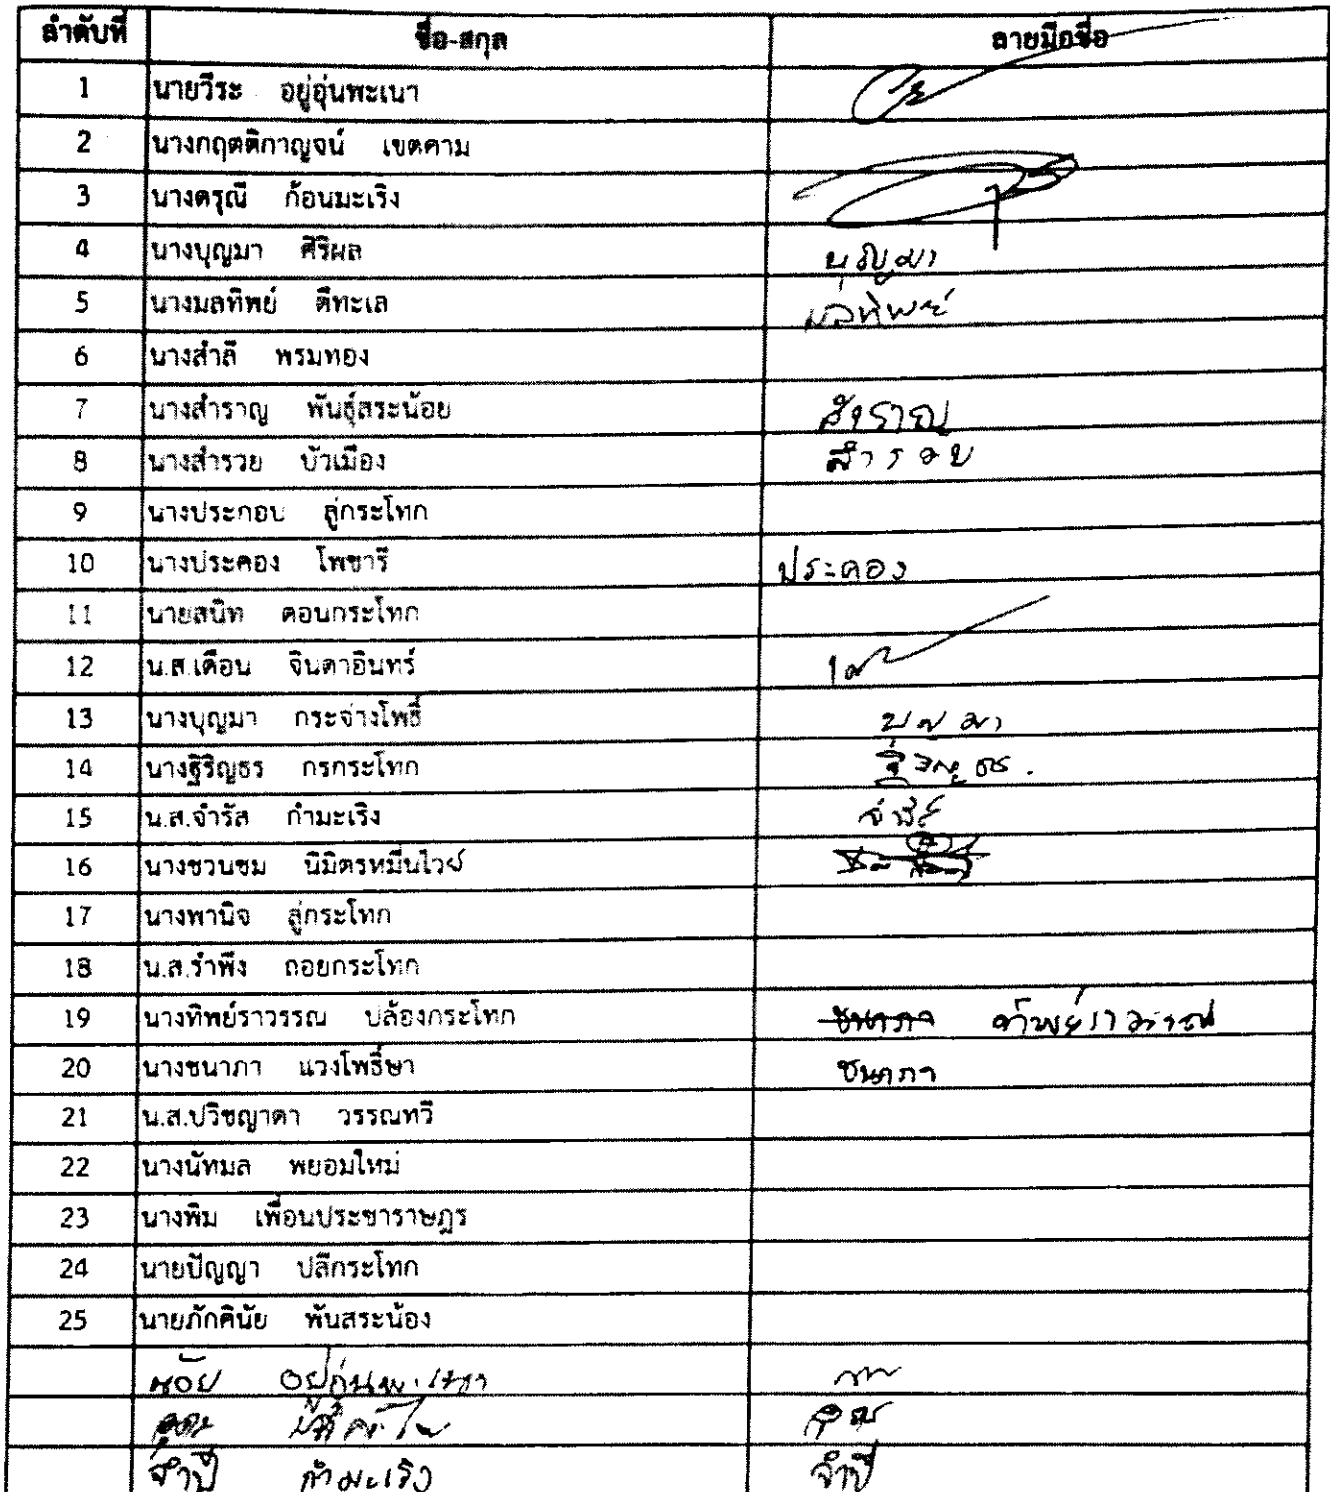 ลำดับที่ ชื่อ-สกุล ลายมือชื่อ
1 นายวีระ อยู่อุ่นพะเนา
2 นางกฤตติกาญจน์ เขตคาม
3 นางดรุณี ก้อนมะเริง
4 นางบุญมา ศิริผล บุญมา
5 นางมลทิพย์ ดีทะเล มลทิพย์
6 นางสำลี พรมทอง
7 นางสำราญ พันธุ์สระน้อย สำราญ
8 นางสำรวย บัวเมือง สำรวย
9 นางประกอบ ลู่กระโทก
10 นางประคอง โพชารี ประคอง
11 นายสนิท ดอนกระโทก
12 น.ส.เดือน จินดาอินทร์
13 นางบุญมา กระจ่างโพธิ์ บุญมา
14 นางฐิริญธร กรกระโทก
15 น.ส.จำรัส กำมะเริง
16 นางชวนชม นิมิตรหมื่นไวย์
17 นางพานิจ ลู่กระโทก
18 น.ส.รำพึง ถอยกระโทก
19 นางทิพย์ราวรรณ ปล้องกระโทก ชนาภา ทิพย์ราวรรณ
20 นางชนาภา แวงโพธิ์ษา ชนาภา
21 น.ส.ปวิชญาดา วรรณทวี
22 นางนัทมล พยอมใหม่
23 นางพิม เพื่อนประชาราษฎร
24 นายปัญญา ปลีกระโทก
25 นายภักคินัย พันสระน้อง
น้อย อยู่อุ่นพะเนา
จำปี กำมะเริง จำปี